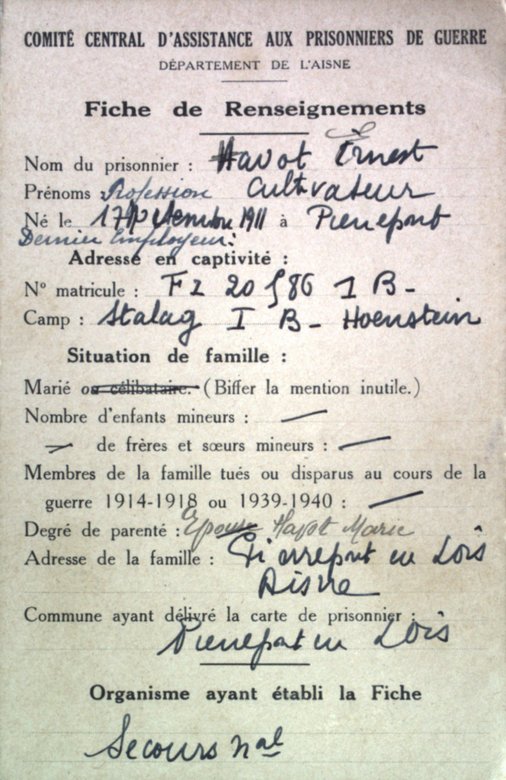 COMITÉ CENTRAL D'ASSISTANCE AUX PRISONNIERS DE GUERRE
DÉPARTEMENT DE L'AISNE
Fiche de Renseignements
Nom du prisonnier : Havot Ernest
Prénoms Profession Cultivateur
Né le 17 1911 à Pierrepont
Dernier Employeur :
Adresse en captivité :
N° matricule : 20586 1 B -
Camp : Stalag I B - Hoenstein
Situation de famille :
Marié ou célibataire. (Biffer la mention inutile.)
Nombre d'enfants mineurs : —
— de frères et sœurs mineurs : —
Membres de la famille tués ou disparus au cours de la
guerre 1914-1918 ou 1939-1940 : —
Degré de parenté : Epouse Havot Marie
Adresse de la famille : Pierrepont en Lois
Aisne
Commune ayant délivré la carte de prisonnier :
Pierrepont en Lois
Organisme ayant établi la Fiche
Secours nal